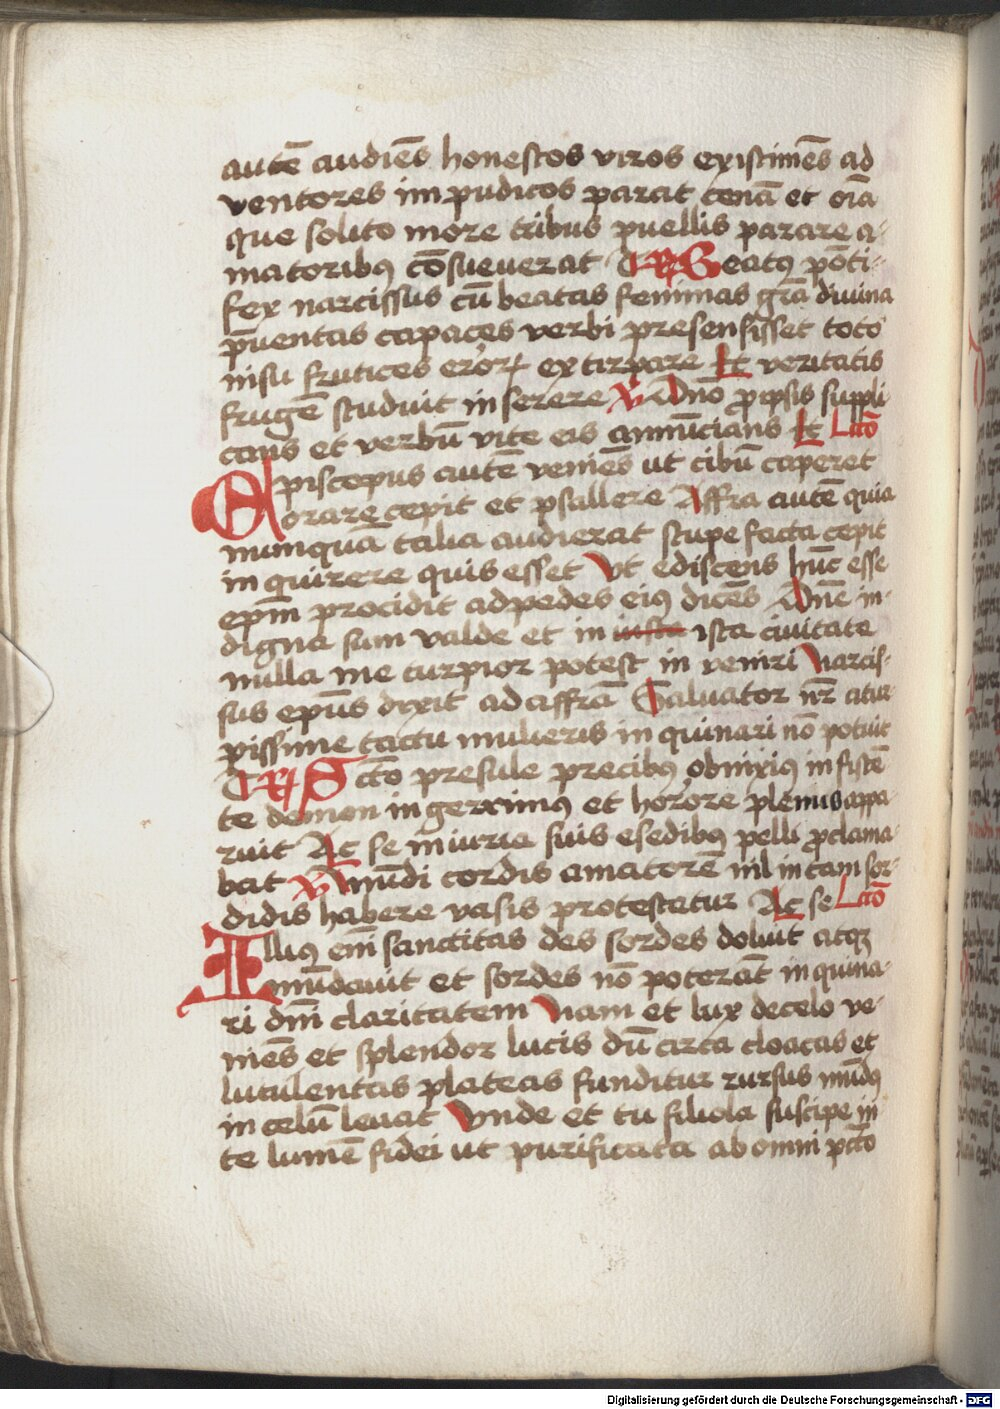 autē audiēs honestos viros existimēs ad
ventores impudicos parat cenā et oīa
que solito more tribus puellis parare a-
matoribꝯ cōsueuerat R Beatꝯ pōti-
fex narcissus cū beatas feminas grā diuina
p̄uentas capaces verbi presensisset toto
nisu frutices erorꝝ extirpare Et veritatis
frugē studuit inserere V Dn̄o p̱ ipsis suppli
cans et verbū vite eis annūcians Et Lcō
Episcopus autē veniēs ut cibū caperet
orare cepit et psallere Affra autē quia
numquā talia audierat stupefacta cepit
inquirere quis esset Vt ediscens hūc esse
epm̄ procidit ad pedes eiꝯ dicēs Dn̄e in-
digna sum valde et in ista ciuitate
nulla me turpior potest inveniri Narcis-
sus epūs dixit ad affrā Saluator nr̄ a tur
pissime tactu mulieris inquinari nō potuit
R Scō presule precibꝯ obnixiꝯ insistē
te demon in gerrimꝯ et horore plenus appa-
ruit Ac se iniuria suis e sedibꝯ pelli p̱clama-
bat V Mūdi cordis amatorē nil in tam sor-
didis habere vasis protestatur Ac se Lcō
Illiꝯ em̄ sanctitas des sordes doluit atqꝫ
mūdauit et sordes nō poterāt inquina-
ri dn̄i claritatem Nam et lux de celo ve-
niēs et splendor lucis dū circa cloacas et
lutulentas plateas funditur rursus mūdꝯ
in celū leuat Vnde et tu filiola suscipe in
te lumē fidei ut purificata ab omni pcc̄o